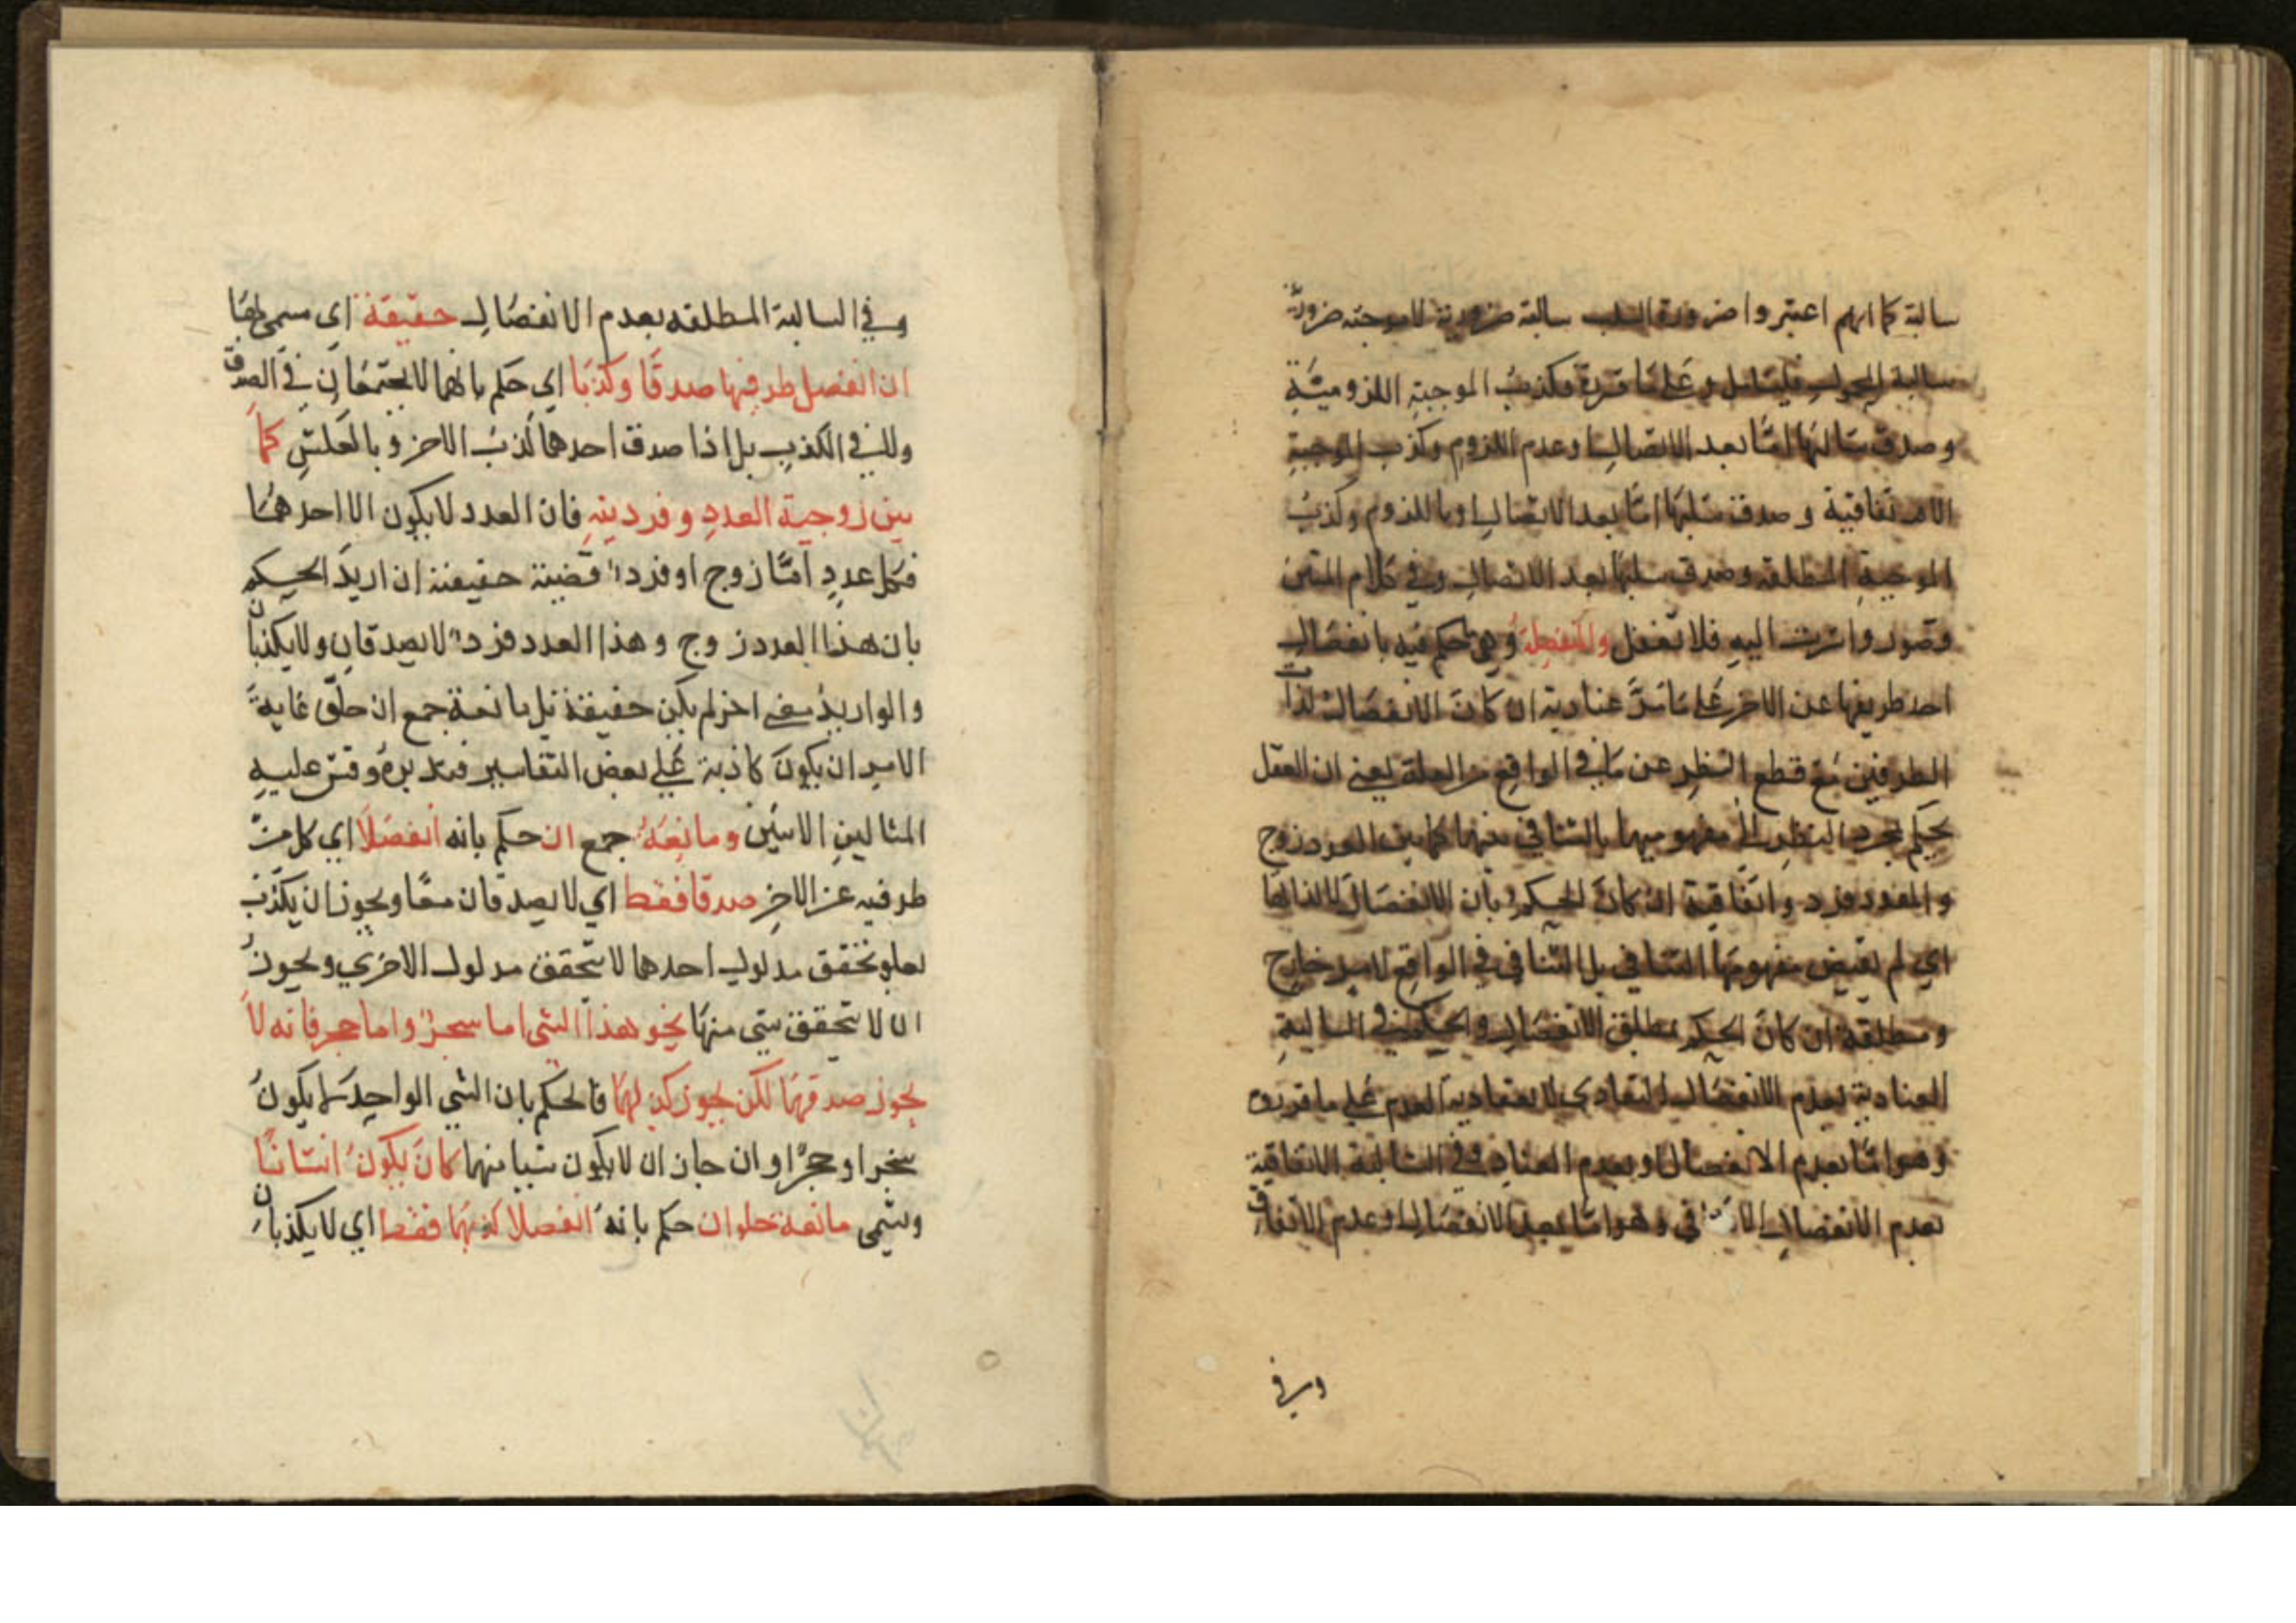 سالبة كما انهم اعتبروا ضرورة السلب سالبة ضرورية لا موجبة ضرورية
سالبة المحمول فليتامل وعلى ما قررة فكذب الموجبة اللزومية
وصدق سالبها اما بعد الاتصال او عدم اللزوم وكذب الموجبة
الاتفاقية وصدق سلبها اما بعد الاتصال او باللزوم وكذب
الموجبة المطلقة وصدق سلبها بعد الاتصال وفي كلام المتن
وقصور واشرت اليه فلا تغفل والمنفصلة وهي حكم فيه بانفصال
احد طريفها عن الاخر على ما مر عنادية ان كان الانفصال لذات
الطرفين مع قطع النظر عن ما في الواقع من العلة يعني ان العقل
يحكم بمجرد النظر الى مفهوميها بالتنافي بينهما كما بين العدد زوج
والعدد فرد واتفاقية ان كان الحكم بان الانفصال لا لذاتها
اي لم يقتض مفهومها التنافي بل التنافي في الواقع لامر خارج
ومطلقة ان كان الحكم بمطلق الانفصال والحكم في السالبة
العنادية بعدم الانفصال العنادي لا بعنادية العدم على ما قررة
وهو اما بعدم الانفصال او بعدم العناد وفي السالبة الاتفاقية
بعدم الانفصال في وهو اما بعدم الانفصال او عدم الاتفاق
وفي
وفي السالبة المطلقه بعدم الانفصال حقيقة اي سمي بها
ان انفصل طرفيها صدقا وكذبا اي حكم بانهما لا يجتمعان في الصدق
ولا في الكذب بل اذا صدق احدهما كذب الاخر وبالعكس كما
بين زوجية العدد وفرديته فان العدد لا يكون الا احدهما
فكل عدد اما زوج او فرد قضية حقيقة ان اريد الحكم
بان هذا العدد زوج وهذا العدد فرد لا يصدقان ولا يكذبان
والو اريد معنى اخر لم يكن حقيقة بل مانعة جمع ان غاية
الامر ان يكون كاذبة على بعض التفاسير فتدبره وقس عليه
المثالين الاتيين ومانعة جمع ان حكم بانه انفصلا اي كل من
طرفيه عن الاخر صدقا فقط اي لا يصدقان معا ويجوز ان يكذب
تحقق مدلول احدهما لا يتحقق مدلول الاخري ويجوز
ان لا يتحقق شي منها نحو هذا الشي اما شجر واما حجر فانه لا
يجوز صدقهما لكن يجوز كذبهما فالحكم بان الشي الواحد يكون
شجرا او حجرا وان جاز ان لا يكون شيا منهما كان يكون انسانا
وتسمى مانعة خلو ان حكم بانه انفصلا كذبهما فقط اي لا يكذبان